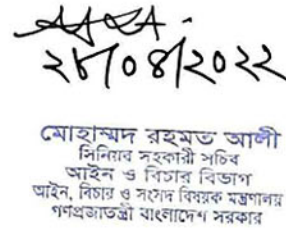 ২৮/০৪/২০২২
মোহাম্মদ রহমত আলী
সিনিয়র সহকারী সচিব
আইন ও বিচার বিভাগ
আইন, বিচার ও সংসদ বিষয়ক মন্ত্রণালয়
গণপ্রজাতন্ত্রী বাংলাদেশ সরকার